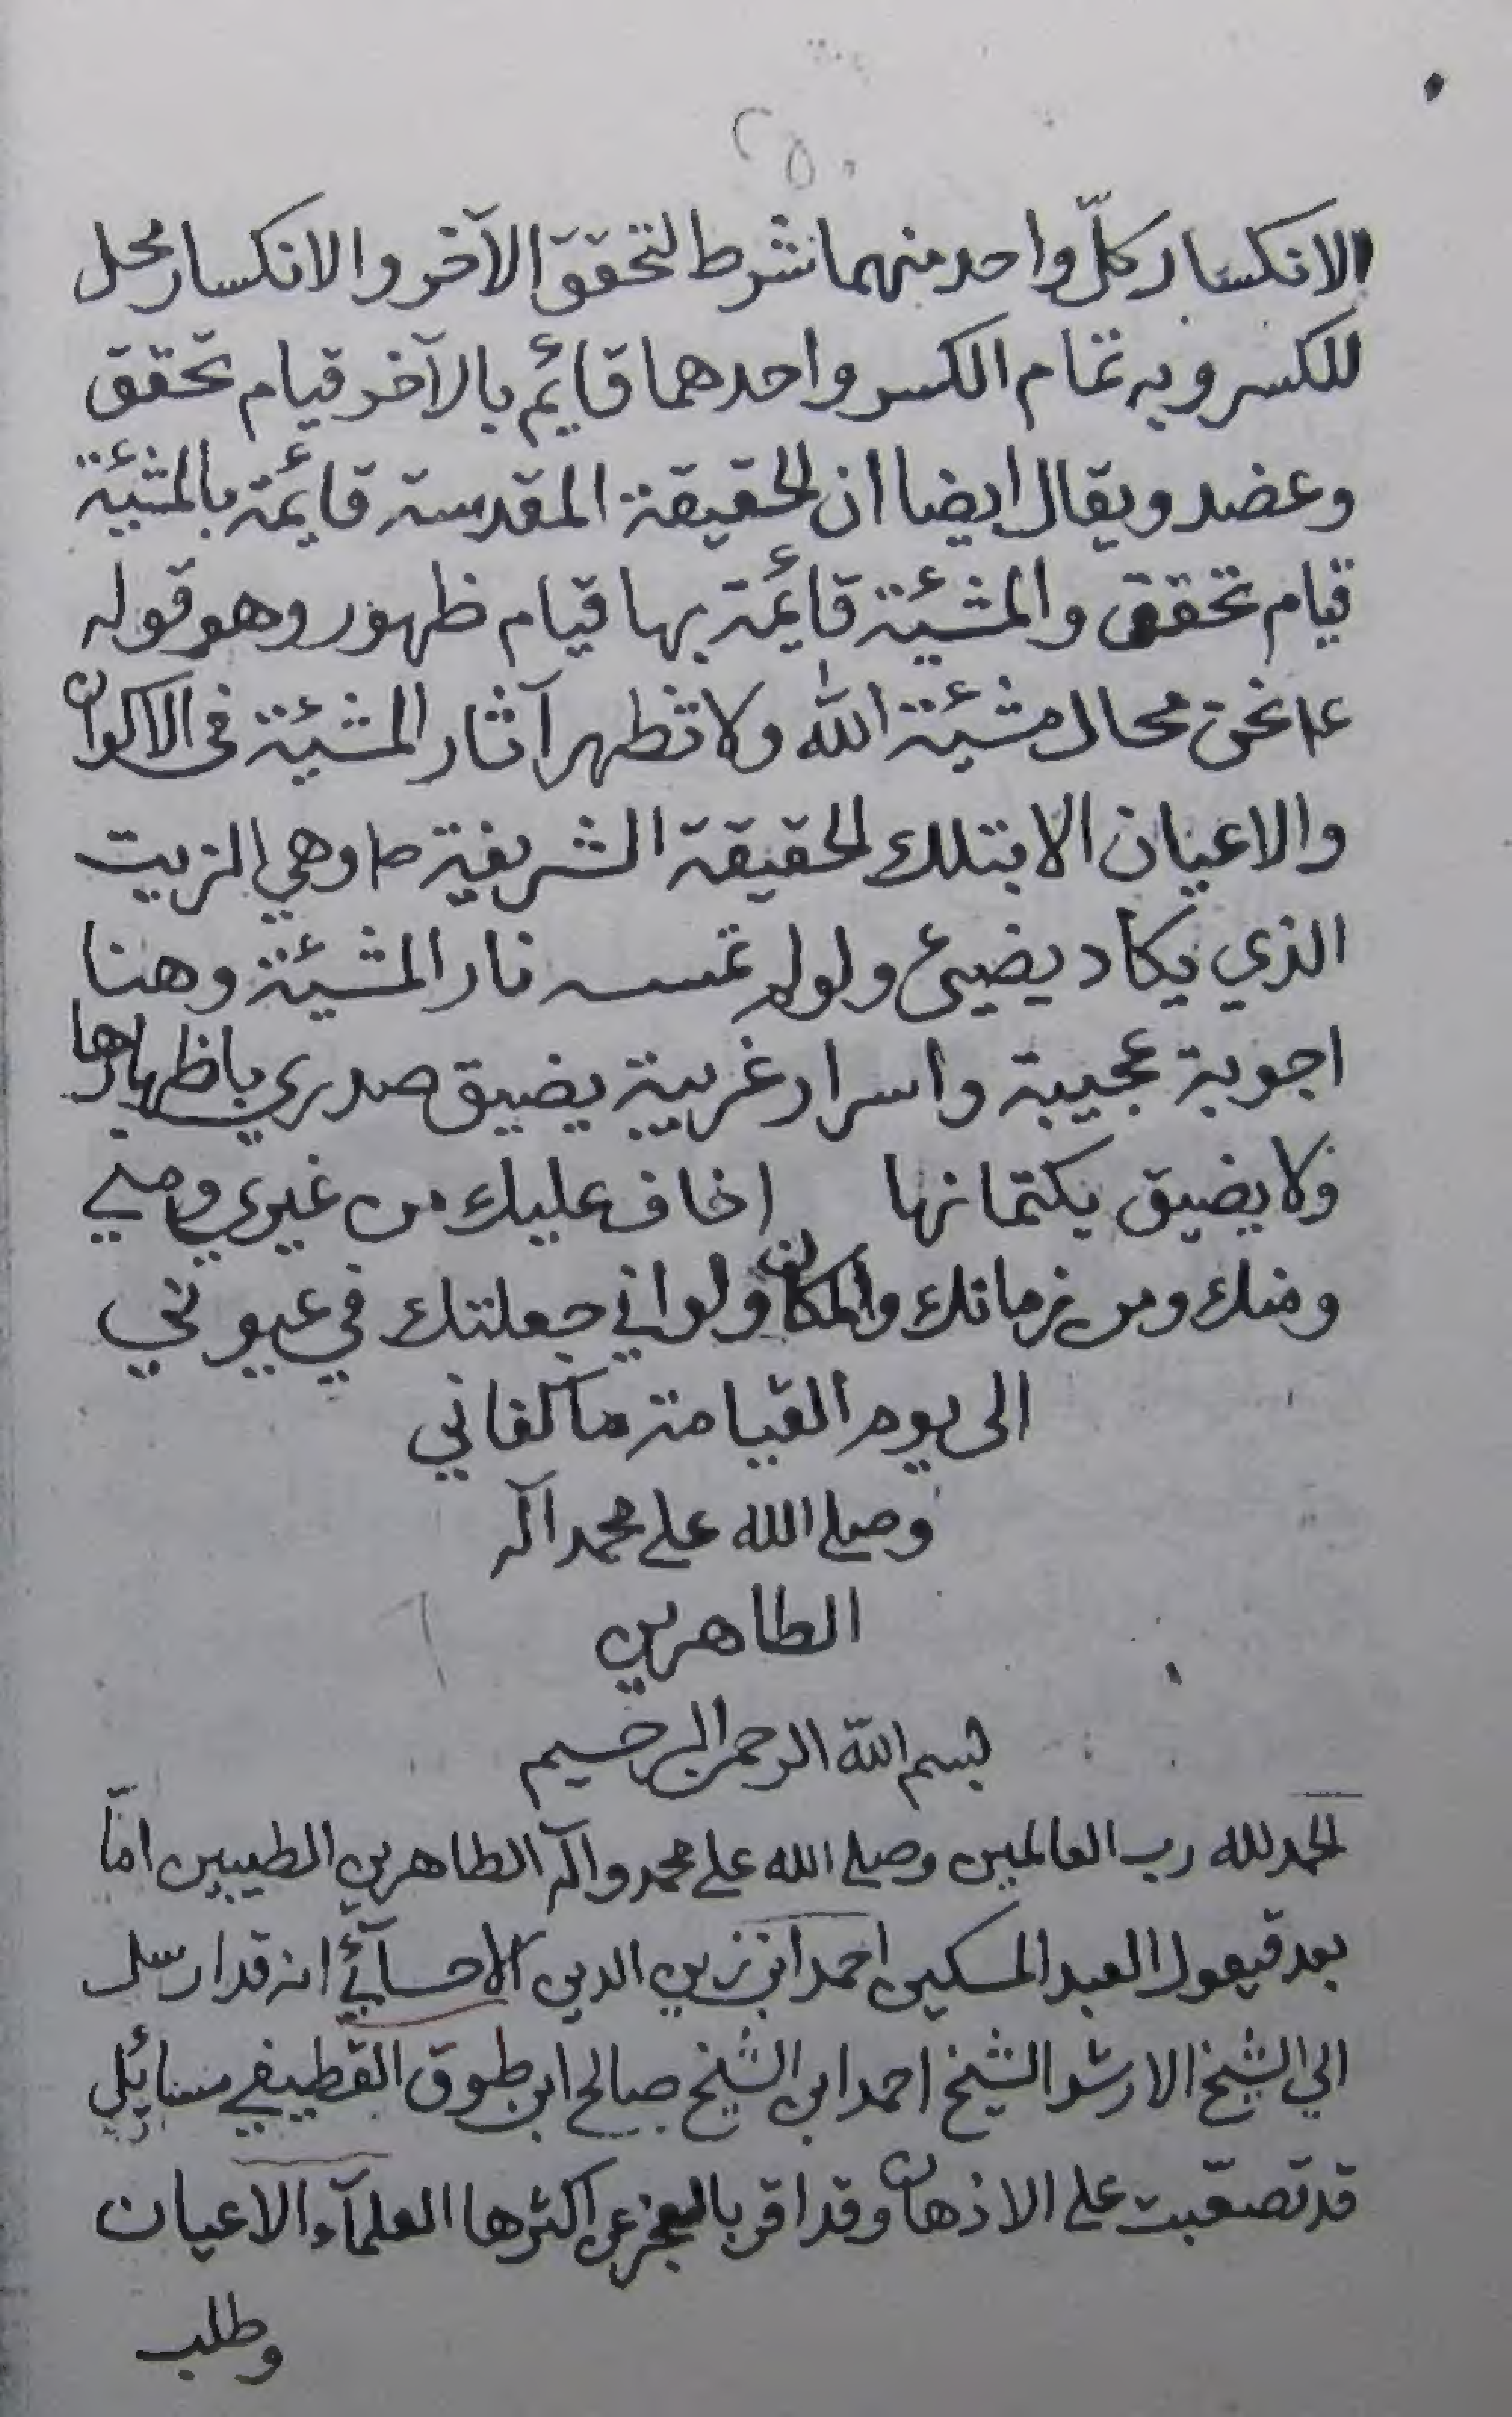 ٢٥٠
الانكسار كلّ واحد منهما شرط لتحقق الآخر والانكسار محل
للكسر وبه تمام الكسر واحدهما قائم بالآخر قيام تحقق
وعضد ويقال ايضا ان الحقيقة المقدسة قائمة بالمشيئة
قيام تحقق والمشيئة قائمة بها قيام ظهور وهو قوله
ع نحن محال مشيئة الله ولا تظهر آثار المشيئة في الاكوان
والاعيان الا بتلك الحقيقة الشريفة وهي الزيت
الذي يكاد يضيئ ولو لم تمسسه نار المشيئة وهنا
اجوبة عجيبة واسرار غريبة يضيق صدري باظهارها
ولا يضيق بكتمانها اخاف عليك من غيري ومني
ومنك ومن زمانك والمكان ولو اني جعلتك في عيوني
الى يوم القيامة ما كفاني
وصلى الله على محمد آله
الطاهرين
بسم الله الرحمن الرحيم
الحمد لله رب العالمين وصلى الله على محمد وآله الطاهرين الطيبين امّا
بعد فيقول العبد المسكين احمد ابن زين الدين الاحسآئي انه قد ارسل
الي الشيخ الارشد الشيخ احمد ابن الشيخ صالح ابن طوق القطيفي مسائل
قد تصعّبت على الاذهان وقد اقر بالعجز عن اكثرها العلمآء الاعيان
وطلب